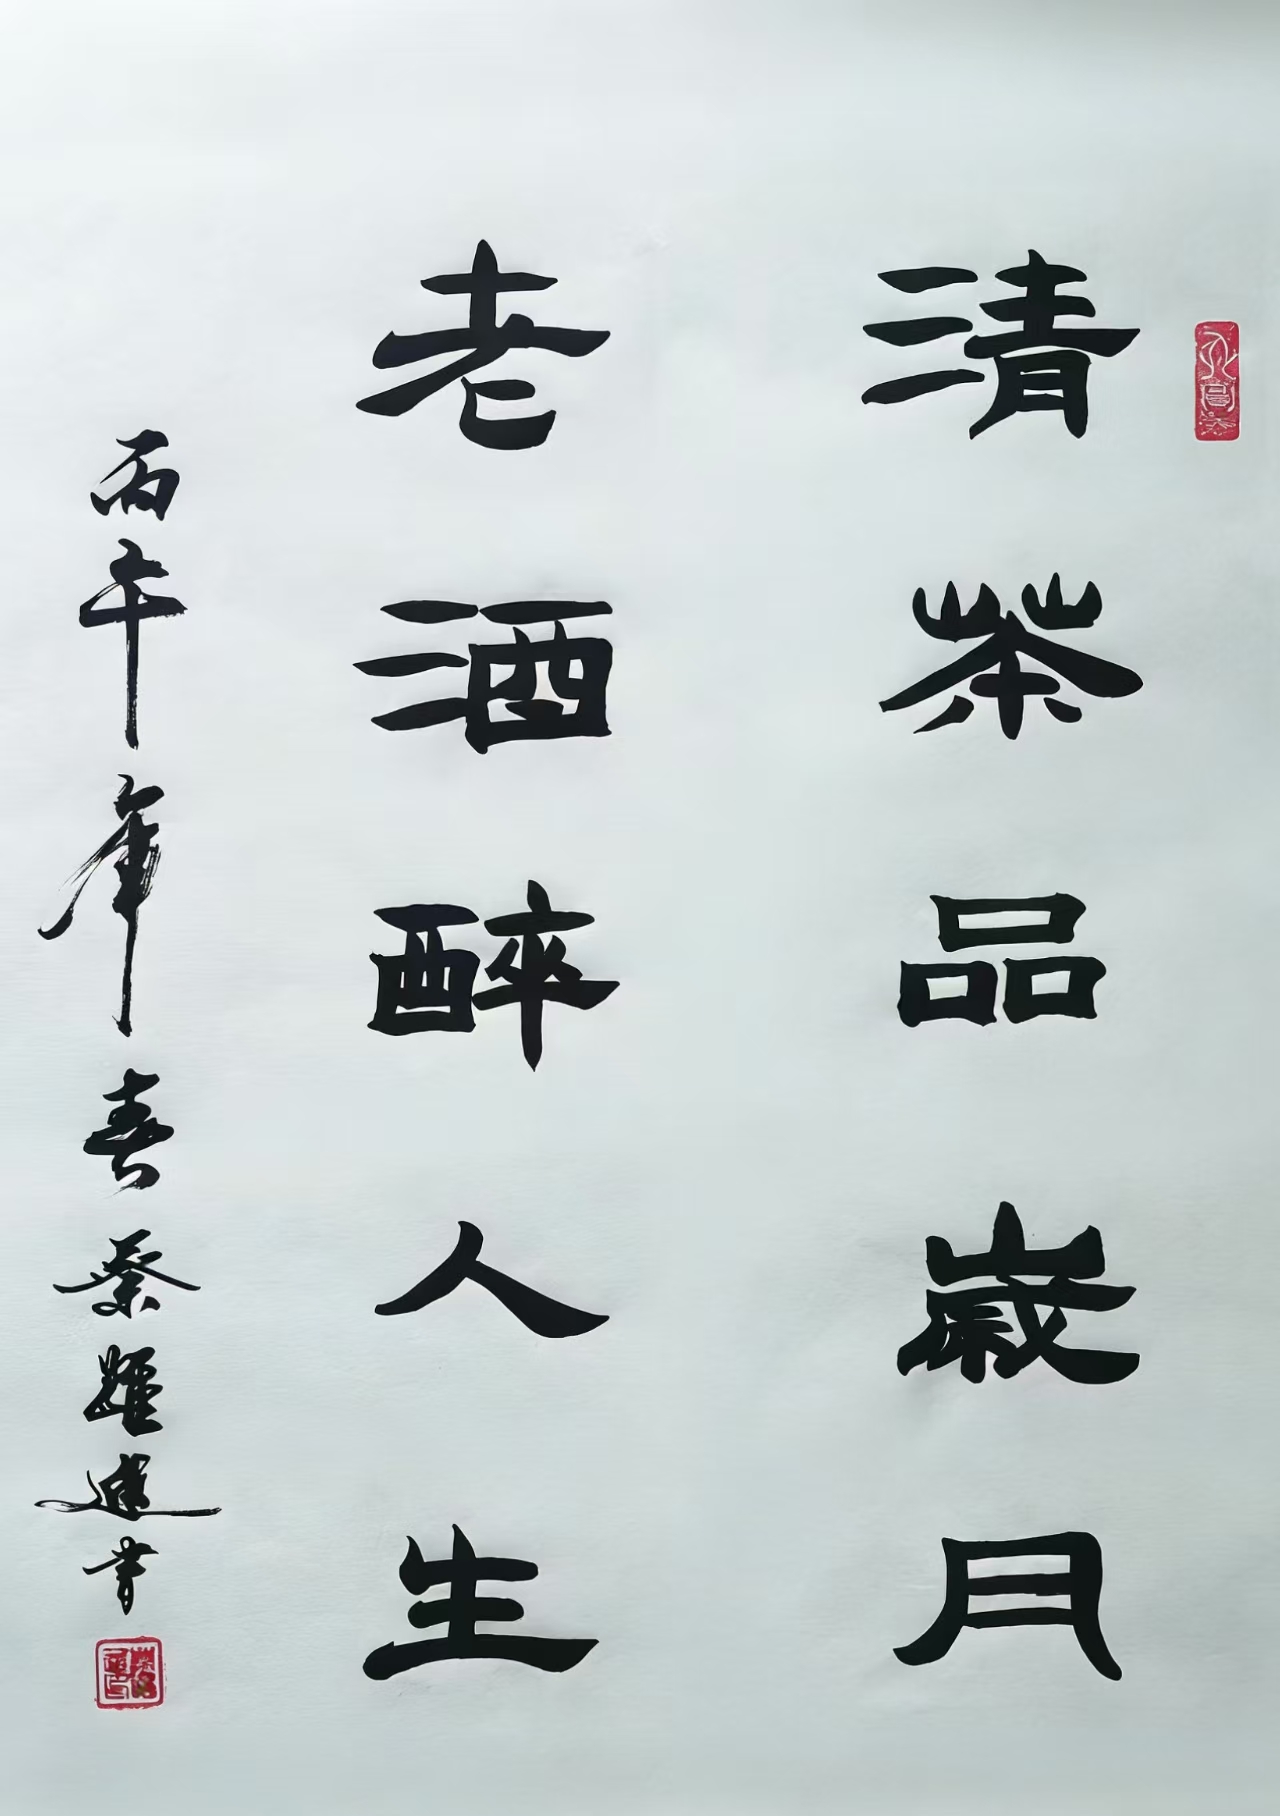 清茶品歲月
老酒醉人生
丙午年春蔡耀進書